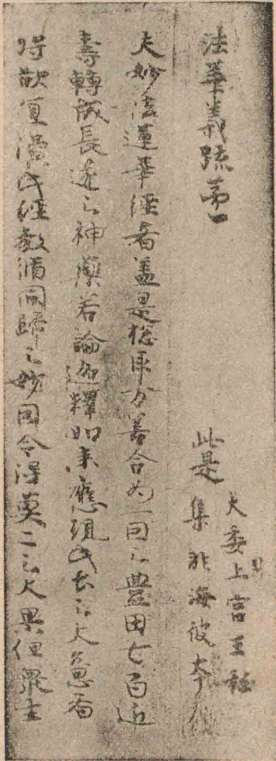 法華義疏第一
此是
大委上宮王私
集非海彼本
夫妙法蓮華経者盖是惣取万善合為一因之豊田七百近
壽轉成長遠之神藥若論迦釋如来應現此土之大意者
将欲宜演此経教脩同歸之妙因令得莫二之大果但衆生